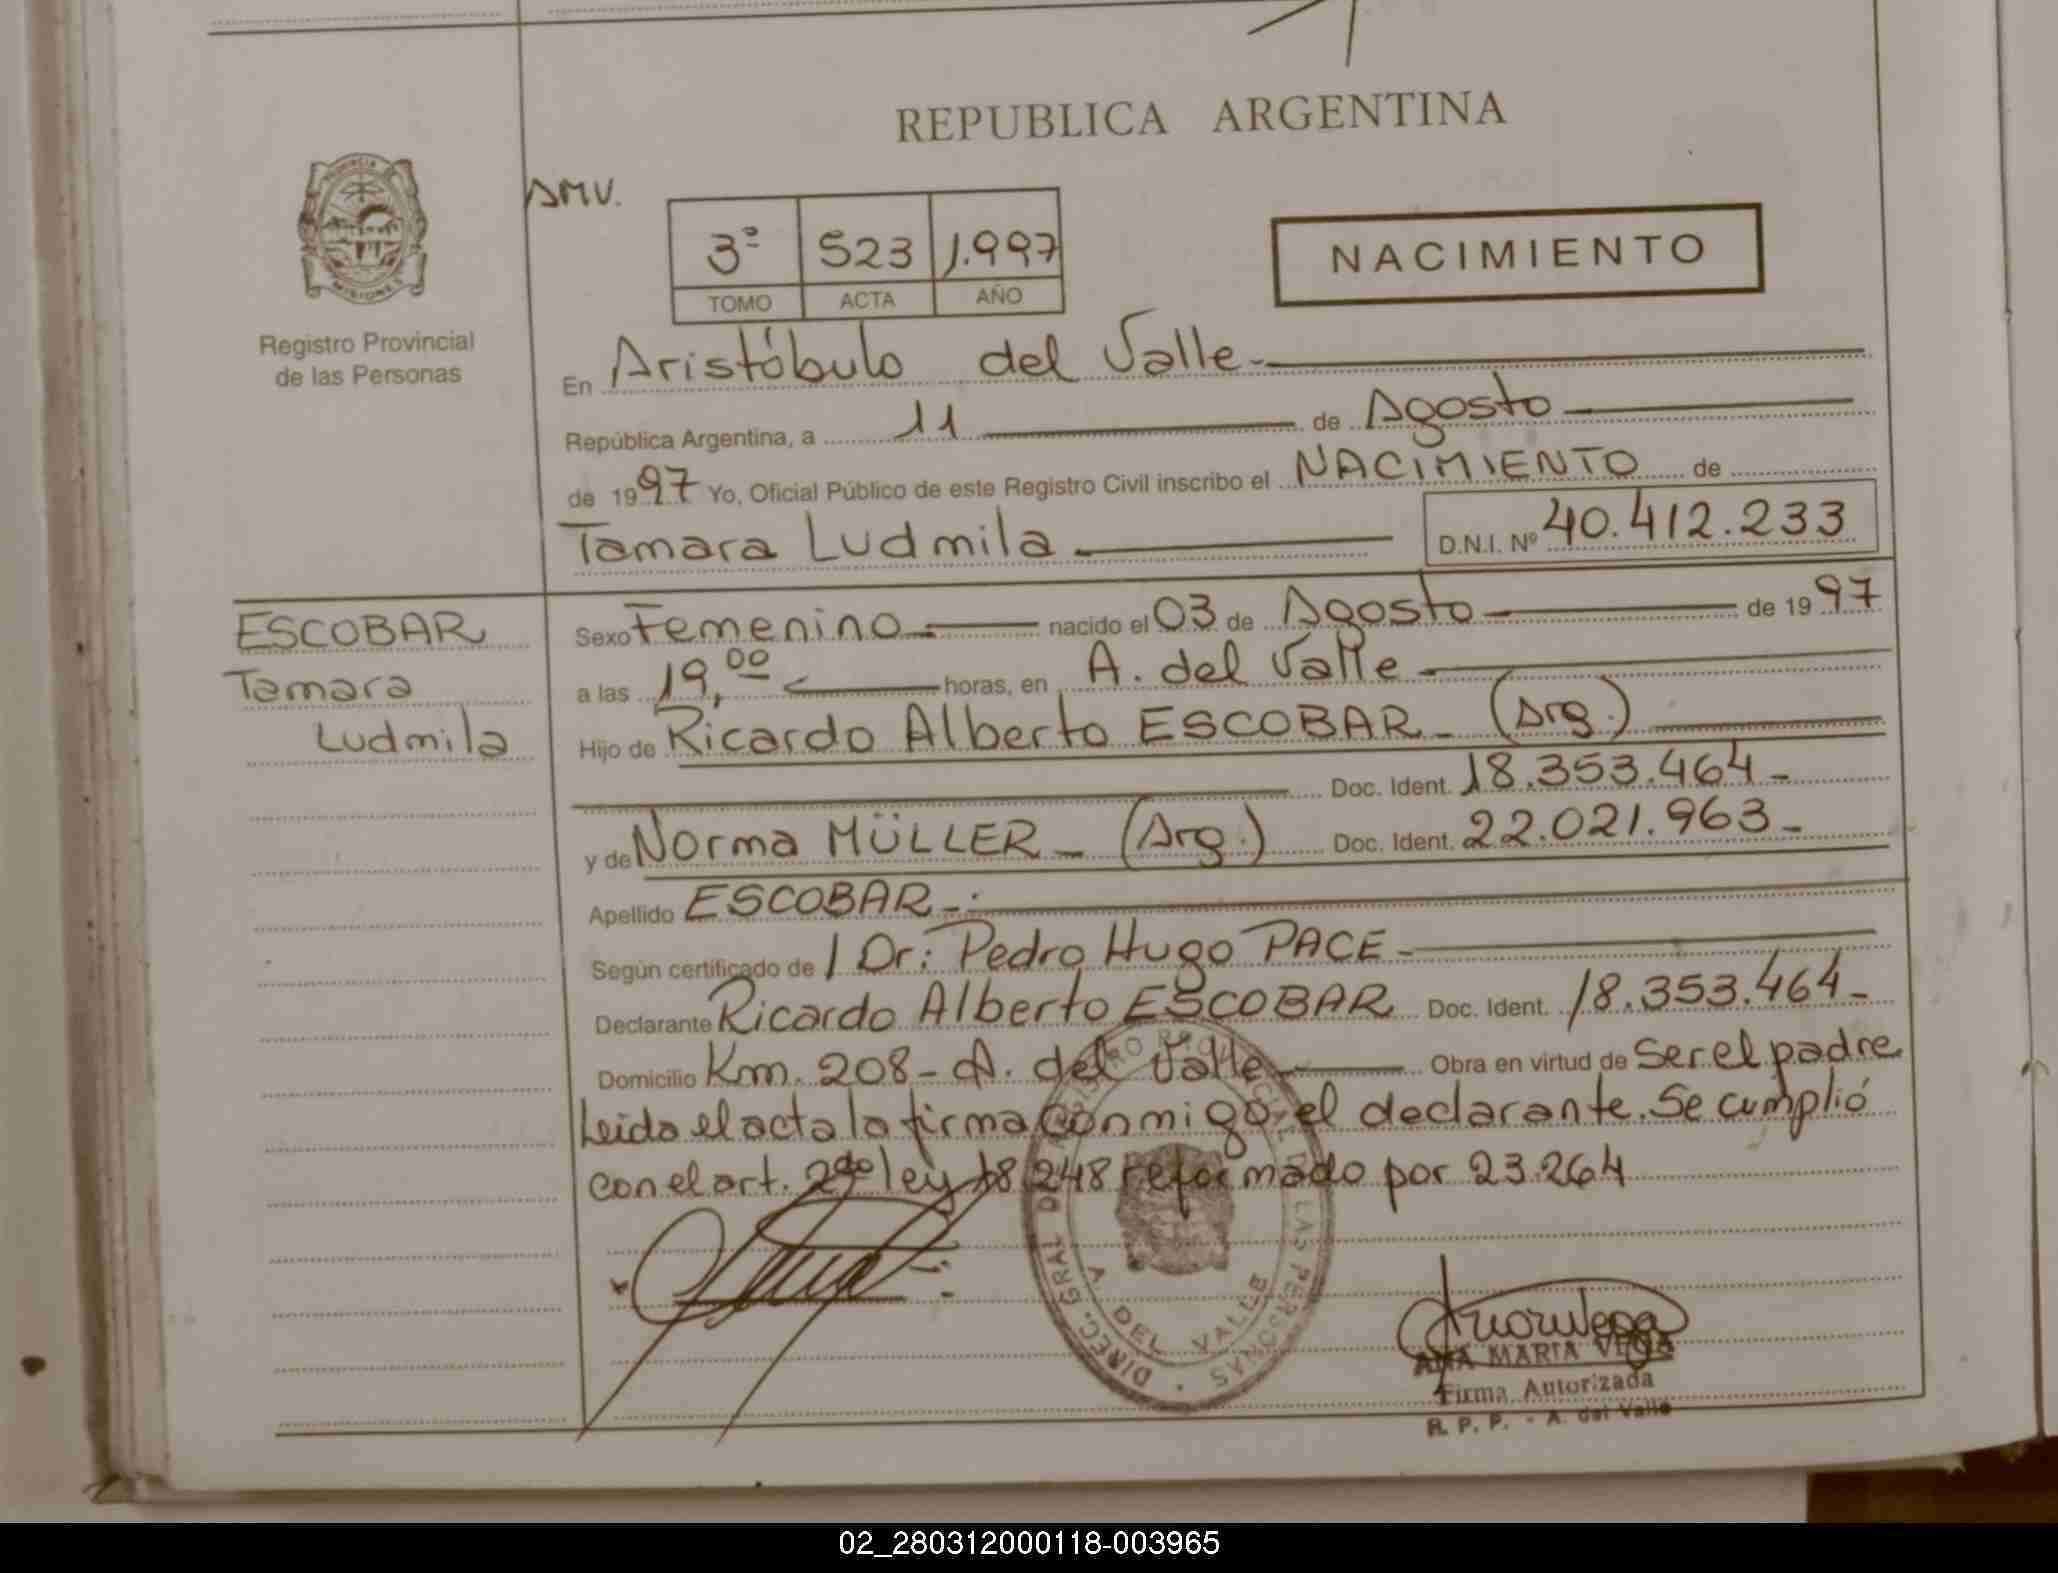 REPUBLICA ARGENTINA
AMV.
3º 523 1.997
TOMO ACTA AÑO
NACIMIENTO
PROVINCIA DE
MISIONES
Registro Provincial
de las Personas
En Aristóbulo del Valle.-
República Argentina, a 11 de Agosto
de 1997 Yo, Oficial Público de este Registro Civil inscribo el NACIMIENTO de
Tamara Ludmila.- D.N.I. Nº 40.412.233
ESCOBAR
Tamara
Ludmila
Sexo Femenino.- nacido el 03 de Agosto de 1997
a las 19,00 horas, en A. del Valle.-
Hijo de Ricardo Alberto ESCOBAR- (Arg.)
Doc. Ident. 18.353.464-
y de Norma MÜLLER- (Arg.) Doc. Ident. 22.021.963-
Apellido ESCOBAR-.
Según certificado de / Dr: Pedro Hugo PACE-
Declarante Ricardo Alberto ESCOBAR Doc. Ident. 18.353.464-
Domicilio Km. 208- A. del Valle Obra en virtud de Ser el padre
Leida el acta la firma conmigo el declarante. Se cumplió
con el art. 2do ley 18248 reformado por 23.264
DIREC. GRAL DEL REGISTRO PROVINCIAL DE LAS PERSONAS
A DEL VALLE
ANA MARIA VEGA
Firma Autorizada
R. P. P. - A. del Valle
02_280312000118-003965